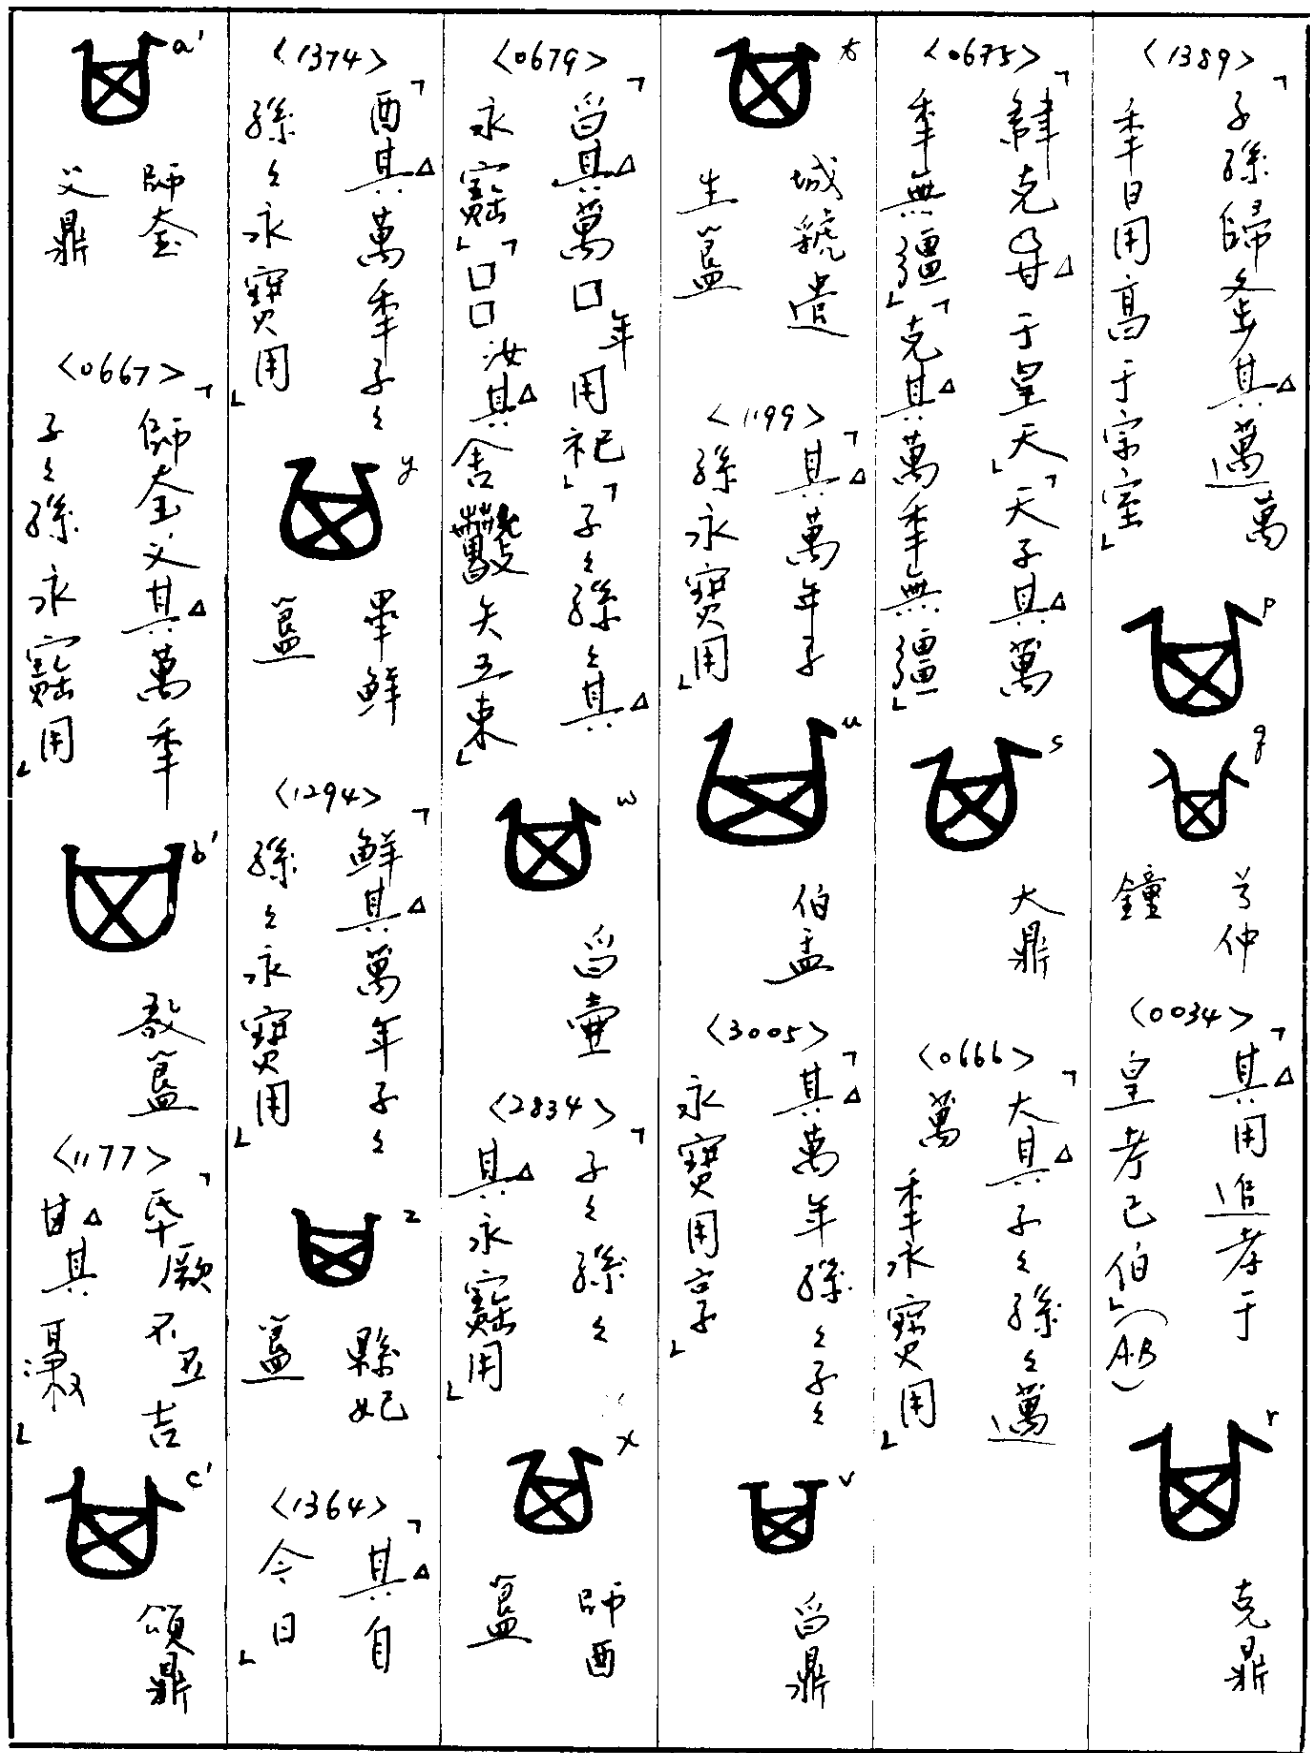 <1389>
「子孫歸夆其△邁萬
年日用享于宗室」
p
q
兮仲
鐘
<0034>
「其△用追孝于
皇考己伯」(A.B)
r
克鼎
<0675>
「肄克△于皇天」「天子其△萬
年無疆」「克其△萬年無疆」
s
大鼎
<0666>
「大其△子〻孫〻邁
萬年永寶用」
t
城虢遣
生簋
<1199>
「其△萬年子
孫永寶用」
u
伯盂
<3005>
「其△萬年孫〻子〻
永寶用享」
v
舀鼎
<0679>
「舀其△萬□年用祀」「子〻孫〻其△
永寶」「□□汝其△舍矢五束」
w
舀壷
<2834>
「子〻孫〻
其△永寶用」
x
師酉
簋
<1374>
「酉其△萬年子〻
孫〻永寶用」
y
畢鮮
簋
<1294>
「鮮其△萬年子〻
孫〻永寶用」
z
縣妃
簋
<1364>
「其△自
今日」
a'
師㚤
父鼎
<0667>
「師㚤父其△萬年
子〻孫永寶用」
b'
簋
<1177>
「氒厥不吉
其△」
c'
頌鼎